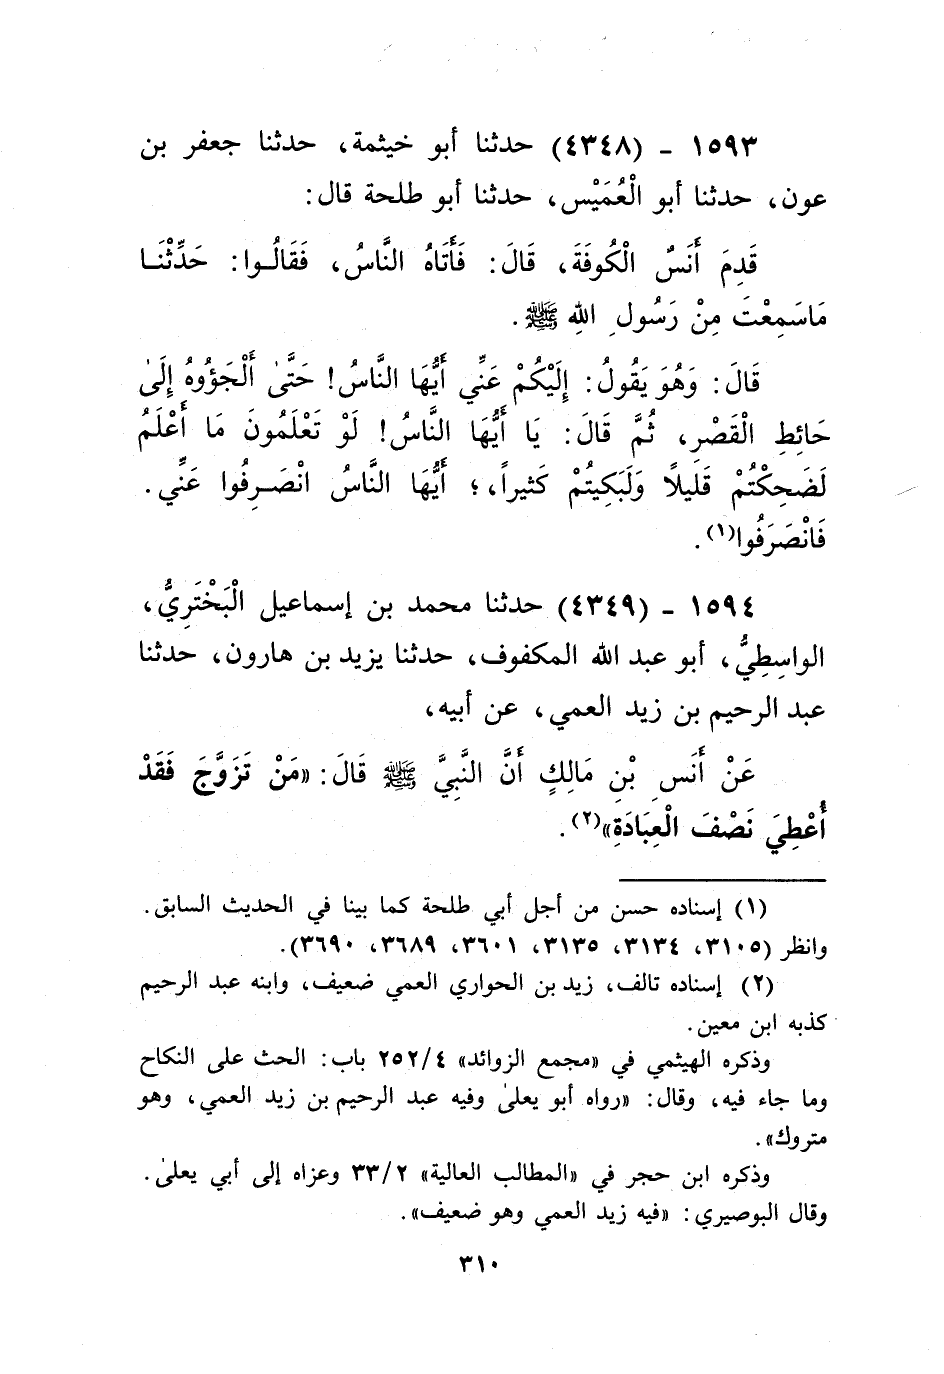 ١٥٩٣ - (٤٣٤٨) حدثنا أبو خيثمة، حدثنا جعفر بن
عون، حدثنا أبو الْعُمَيْس، حدثنا أبو طلحة قال:
قَدِمَ أَنَسٌ الْكُوفَةَ، قَالَ: فَأَتَاهُ النَّاسُ، فَقَالُـوا: حَدِّثْنَـا
مَاسَمِعْتَ مِنْ رَسُولِ اللهِ ﷺ.
قَالَ: وَهُوَ يَقُولُ: إِلَيْكُمْ عَنِّي أَيُّهَا النَّاسُ! حَتَّىٰ أَلْجَؤُوهُ إِلَىٰ
حَائِطِ الْقَصْرِ، ثُمَّ قَالَ: يَا أَيُّهَا النَّاسُ! لَوْ تَعْلَمُونَ مَا أَعْلَمُ
لَضَحِكْتُمْ قَلِيلًا وَلَبَكِيتُمْ كَثيراً،؛ أَيُّهَا النَّاسُ انْصَـرِفُوا عَنِّي.
فَانْصَرَفُوا(١).
١٥٩٤ - (٤٣٤٩) حدثنا محمد بن إسماعيل الْبَخْتَرِيُّ،
الواسِطِيُّ، أبو عبد الله المكفوف، حدثنا يزيد بن هارون، حدثنا
عبد الرحيم بن زيد العمي، عن أبيه،
عَنْ أَنَسِ بْنِ مَالِكٍ أَنَّ النَّبِيَّ ﷺ قَالَ: «مَنْ تَزَوَّجَ فَقَدْ
أُعْطِيَ نَصْفَ الْعِبَادَةِ»(٢).
(١) إسناده حسن من أجل أبي طلحة كما بينا في الحديث السابق.
وانظر (٣١٠٥، ٣١٣٤، ٣١٣٥، ٣٦٠١، ٣٦٨٩، ٣٦٩٠).
(٢) إسناده تالف، زيد بن الحواري العمي ضعيف، وابنه عبد الرحيم
كذبه ابن معين.
وذكره الهيثمي في «مجمع الزوائد» ٢٥٢/٤ باب: الحث على النكاح
وما جاء فيه، وقال: «رواه أبو يعلىٰ وفيه عبد الرحيم بن زيد العمي، وهو
متروك».
وذكره ابن حجر في «المطالب العالية» ٣٣/٢ وعزاه إلى أبي يعلىٰ.
وقال البوصيري: «فيه زيد العمي وهو ضعيف».
٣١٠